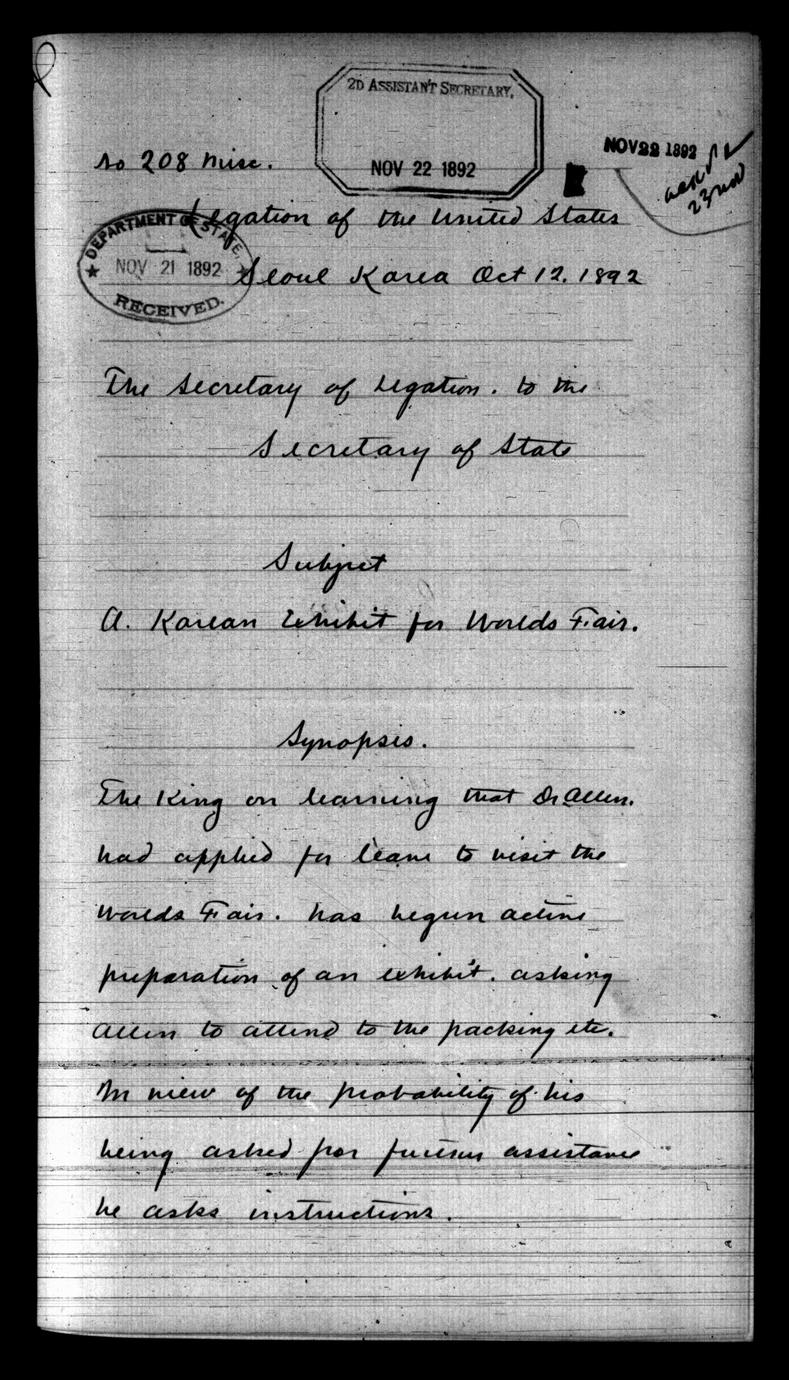 2D ASSISTANT SECRETARY,
NOV 22 1892
NOV 22 1892
No 208 Misc.
23 Nov
Legation of the United States
DEPARTMENT OF STATE
NOV 21 1892
RECEIVED.
Seoul Korea Oct 12. 1892
The Secretary of Legation. to the
Secretary of State
Subject
A. Korean Exhibit for Worlds Fair.
Synopsis.
The King on learning that Dr Allen.
had applied for leave to visit the
Worlds Fair. has begun active
preparation of an exhibit. asking
Allen to attend to the packing etc.
In view of the probability of his
being asked for further assistance
he asks instructions.